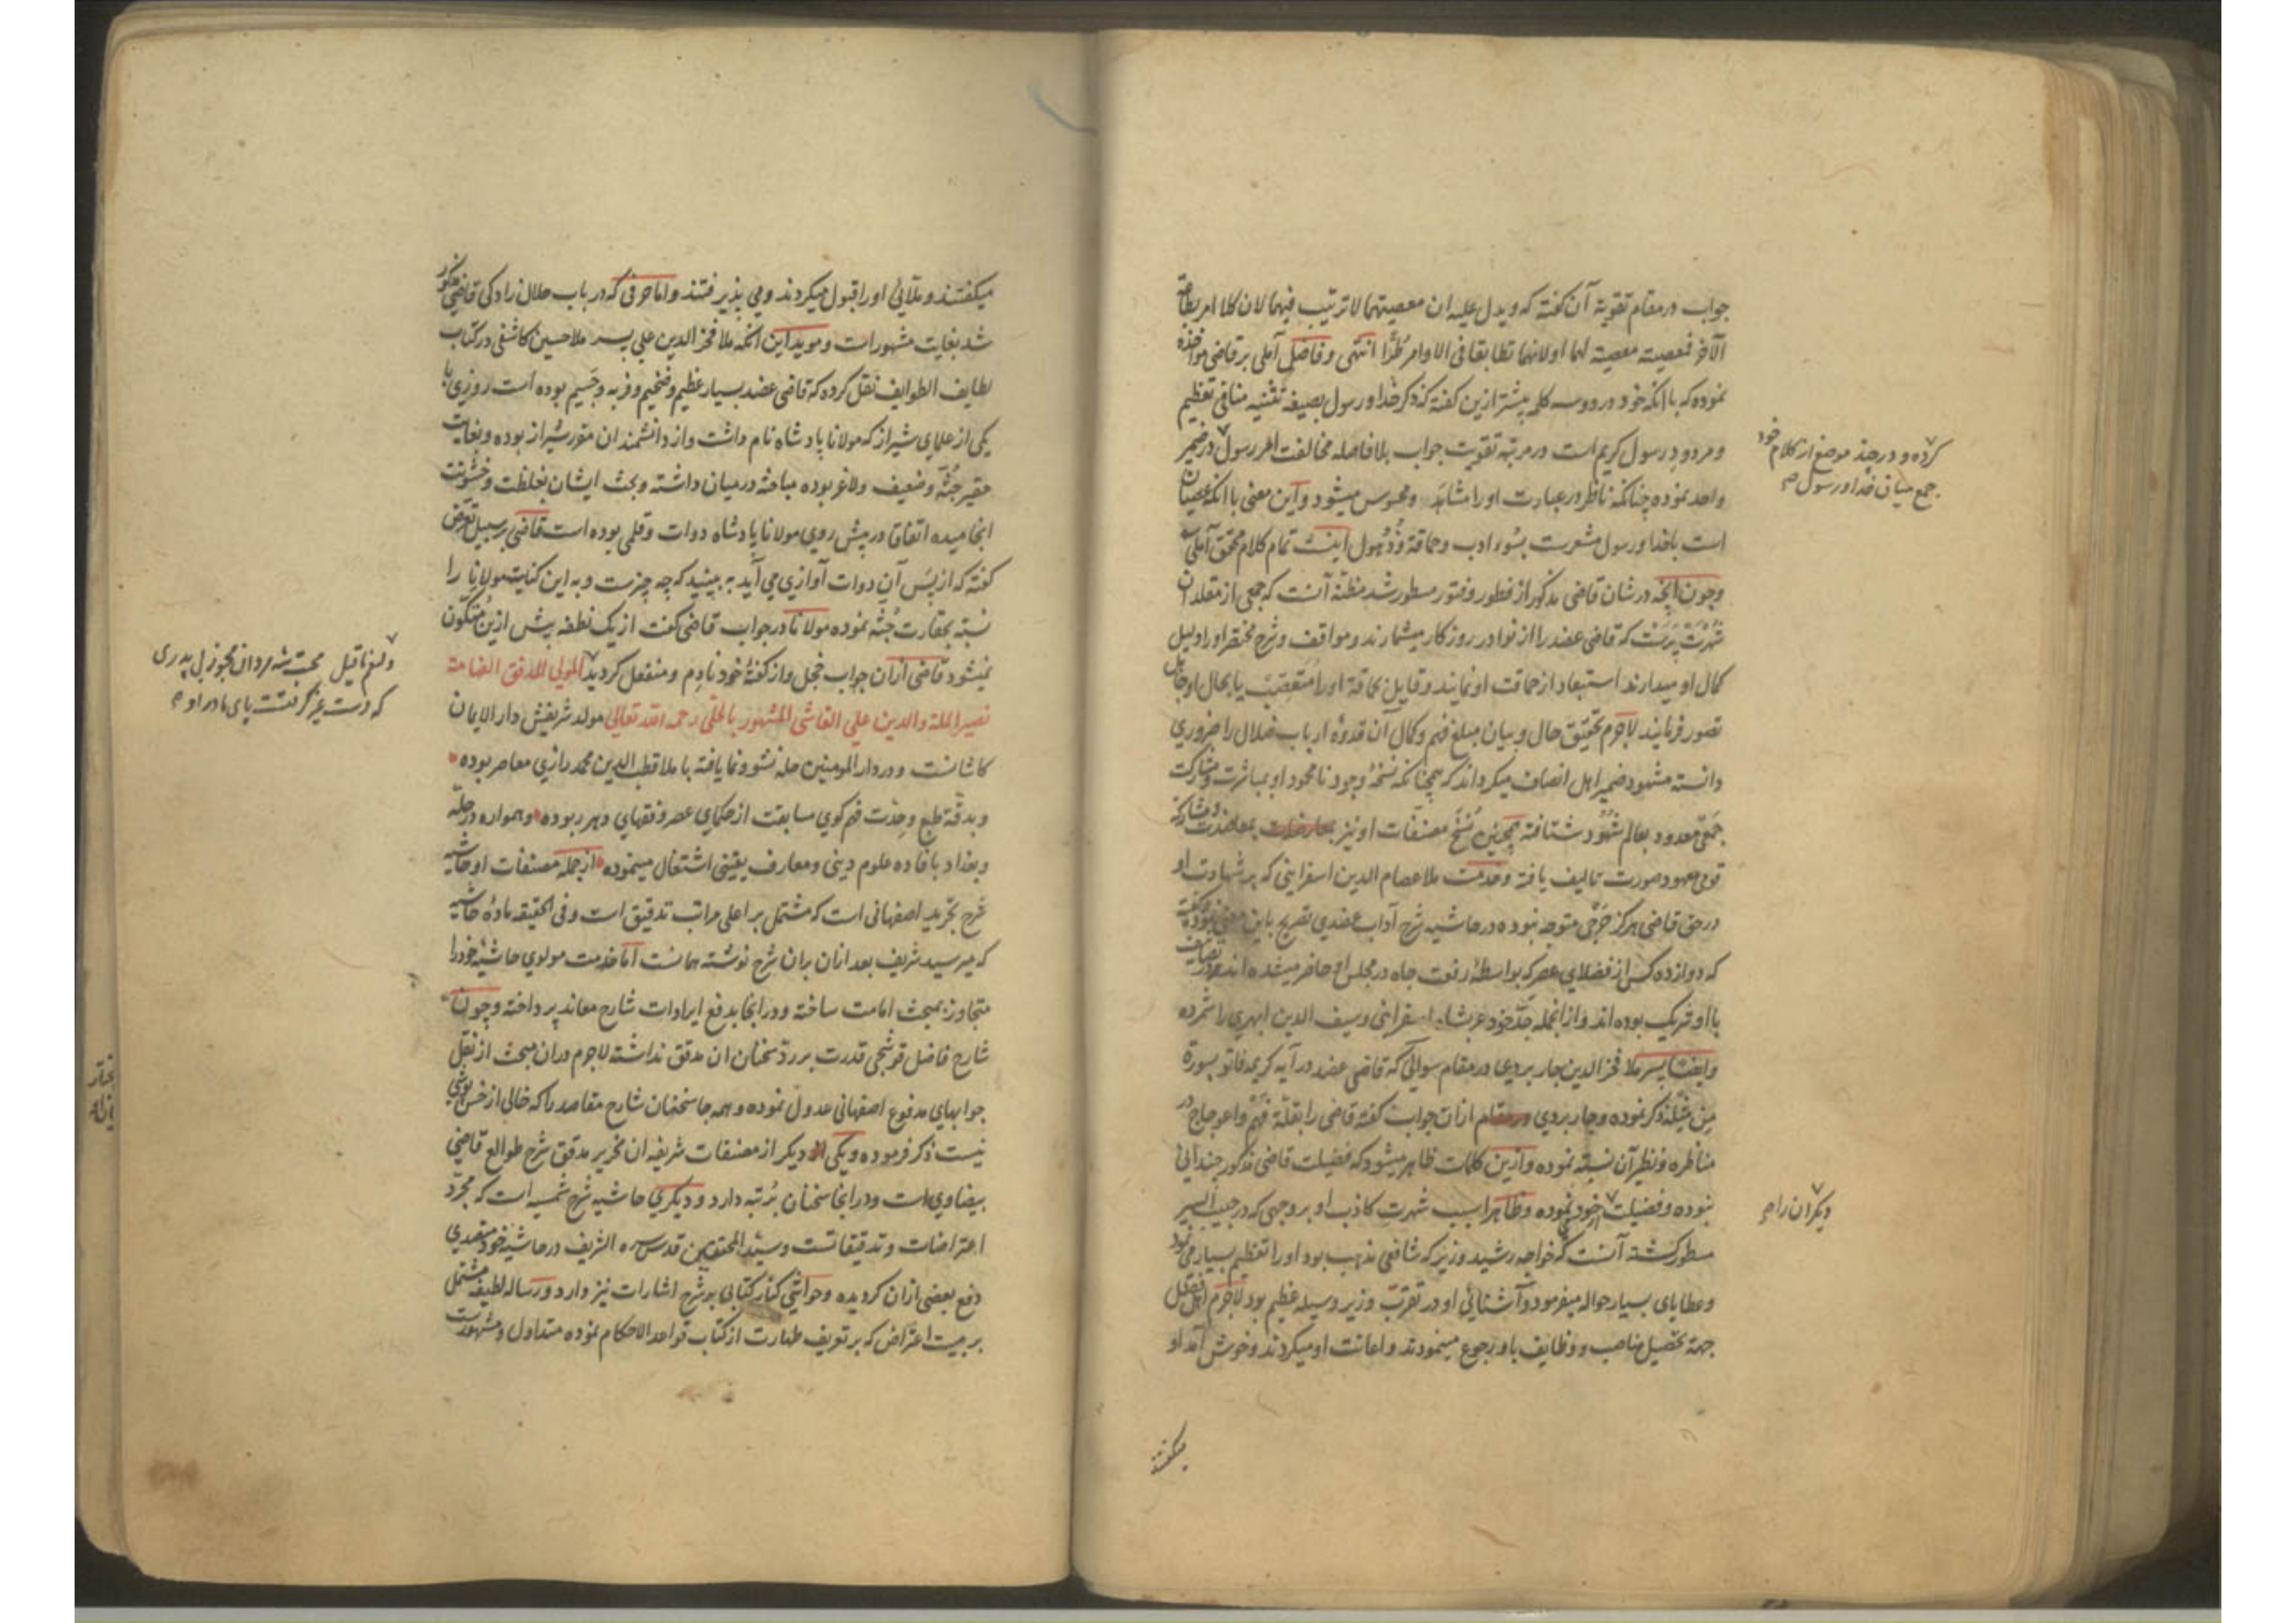 جواب در مقام تقویة آن گفته که ویدل علیه ان معصیتهما لا ترتیب فیهما لان کلا امر بطاعة
الآخر فمعصیته معصیة لهما او لانهما تطابقا فی الاوامر طُرّا انتهی وفاضل آملی بر قاضی مواخذه
نموده که با انکه خود در دو سه کلمه پیشتر ازین گفته که ذکر خدا و رسول بصیغه تثنیه منافی تعظیم
و مردود رسول کریم است در مرتبه تقویت جواب بلا فاصله مخالفت امر رسول در ضمیر
واحد نموده چنانکه ناظر در عبارت او را مشاهَد و محسوس میشود و این معنی با انکه عصیان
است با خدا و رسول مشعرست بسُوء ادب و حماقة و ذُهول اینست تمام کلام محقق آملی
و چون انچه در شان قاضی مذکور از فطور و فتور مسطور شد مظنّه آنست که جمعی از مقلدان
شُهْرَت پَرَست که قاضی عضد را از نوادر روزگار میشمارند و مواقف و شرح مختصر او را دلیل
کمال او میدارند استبعاد از حماقت او نمایند و قایل بحماقة او را مُتَعصّب یا بحال او جاهل
تصور فرمایند لاجرم تحقیق حال و بیان مبلغ فهم و کمال آن قدوهٔ ارباب ضلال را ضروری
دانسته مشهود ضمیر اهل انصاف میکرداند که همچنانکه نسخهٔ وجود نامحمود او بمباشرت و مشارکت
جمعی معدود بعالم شُهُود شتافته همچنین نُسَخ مصنفات او نیز بمعاضدت و مشارکة
قومی معهود صورت تالیف یافته و خدمت ملا عصام الدین اسفراینی که بر شهادت او
در حق قاضی هرکز جَرحی متوجه نبوده در حاشیه شرح آداب عضدی تصریح باین معنی نموده و گفته
که دوازده کس از فضلای عصر که بواسطهٔ رفعت جاه در مجلس او حاضر میشده اند در تصانیف
با او شریک بوده اند و از انجمله جدّ خود عربشاه اسفراینی و سیف الدین ابهری را شمرده
و ایضا پسر ملا فخر الدین جاربردی در مقام سوالی که قاضی عضد در آیه کریمه فاتو بسورة
مِن مِثْلِه ذکر نموده و جاربردی ازان جواب گفته قاضی را بقلّة فهْم و اعوجاج در
مناظره و نظر آن نسبة نموده و ازین کلمات ظاهر میشود که فضیلت قاضی مذکور چندانی
نبوده و فضیلت خود نموده و ظاهرا سبب شهرت کاذب او بر وجهی که در حبیب السیر
مسطور کشته آنست که خواجه رشید وزیر که شافعی مذهب بود او را تعظیم بسیار می نمود
و عطایای بسیار حواله میفرمود و آشنائی او در تقرّب وزیر وسیله عظیم بود لاجرم اهل فضل
جهة تحصیل مناصب و وظایف باو رجوع مینمودند و اعانت او میکردند و خوش آمد او
کرده و در چند موضع از کلام خود
جمع میان خدا و رسول
دیکران را
میکفتند
میکفتند و ملائی او را قبول میکردند و می پذیرفتند و اما حرفی که در باب حلال زادکی قاضی مذکور
شد بغایت مشهورات و موید این انکه ملا فخر الدین علی پسر ملا حسین کاشفی در کتاب
لطایف الطوایف نقل کرده که قاضی عضد بسیار عظیم و ضخیم و فربه و جَسیم بوده است روزی با
یکی از علمای شیراز که مولانا پادشاه نام داشت و از دانشمندان مقرر شیراز بوده و بغایت
حقیر جُثّه و ضعیف و لاغر بوده مباحثه در میان داشته و بحث ایشان بغلظت و خشونت
انجامیده اتفاقا در پیش روی مولانا پادشاه دوات و قلمی بوده است قاضی بر سبیل تعرض
گفته که از پسَ آن دوات آوازی می آید به بینید که چه چیزست و به این کنایت مولانا را
نسبته بحقارت جُثّه نموده مولانا در جواب قاضی گفت از یک نطفه پیش ازین متکون
نمیشود قاضی ازان جواب خجل و از کفتهٔ خود نادِم و منفعل کردید المولی المدقق العلامة
نصیر الملة والدین علی القاشی المشهور بالحلّی رحمه الله تعالی مولد شریفش دار الایمان
کاشانست و در دار المومنین حله نشو و نما یافته با ملا قطب الدین محمد رازی معاصر بوده
و بدقة طبع و حِدّت فهم کوی مسابقت از حکمای عصر و فقهای دهر ربوده و همواره در حلّه
و بغداد بافاده علوم دینی و معارف یقینی اشتغال مینموده از جمله مصنفات او حاشیه
شرح تجرید اصفهانی است که مشتمل بر اعلی مراتب تدقیق است و فی الحقیقه مادهٔ حاشیه
که میر سید شریف بعد ازان بران شرح نوشته همانست اما خدمت مولوی حاشیهٔ خود را
متجاوز بمبحث امامت ساخته و در انجا بدفع ایرادات شارح معاند پرداخته و چون
شارح فاضل قوشجی قدرت بر ردّ سخنان ان مدقق نداشته لاجرم دران مبحث از نقل
جوابهای مدفوع اصفهانی عدول نموده و همه جا سخنان شارح مقاصد را که خالی از خس پوشی
نیست ذکر فرموده و یکی دیکر از مصنفات شریفه ان نحریر مدقق شرح طوالع قاضی
بیضاوی است و در انجا سخنان برُتبه دارد و دیکری حاشیه شرح شمسیه است که مجرّد
اعتراضات و تدقیقاتست و سیّد المحققین قدس سره الشریف در حاشیه خود متصدی
دفع بعضی ازان کردیده و حواشی کنار کتابی بر شرح اشارات نیز دارد و رساله لطیفه مشتمل
بر بیست اعتراض که بر تعریف طهارت از کتاب قواعد الاحکام نموده متداول و مشهورست
ولنعم ما قیل محبت شه مردان مجو ز بی پدری
که دست غیر گرفتست پای مادر او